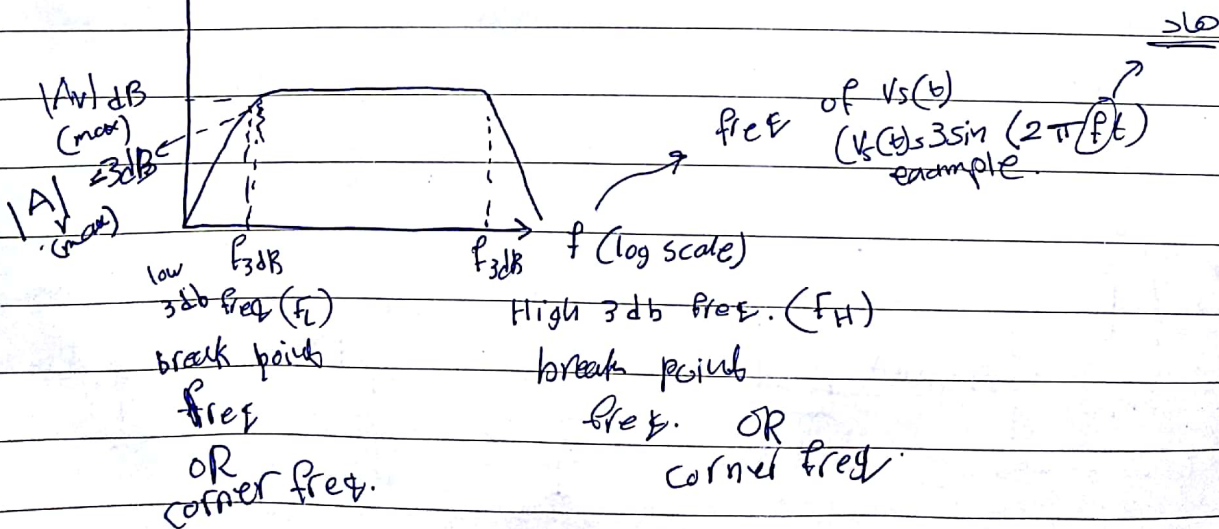 |Av| dB
(max)
-3dB
|Av|
(max)
freq of Vs(t)
(Vs(t)=3sin (2πft)
example.
f3dB
f3dB
f (log scale)
low
3db freq (fL)
break point
freq
OR
corner freq.
High 3db freq. (fH)
break point
freq. OR
corner freq.